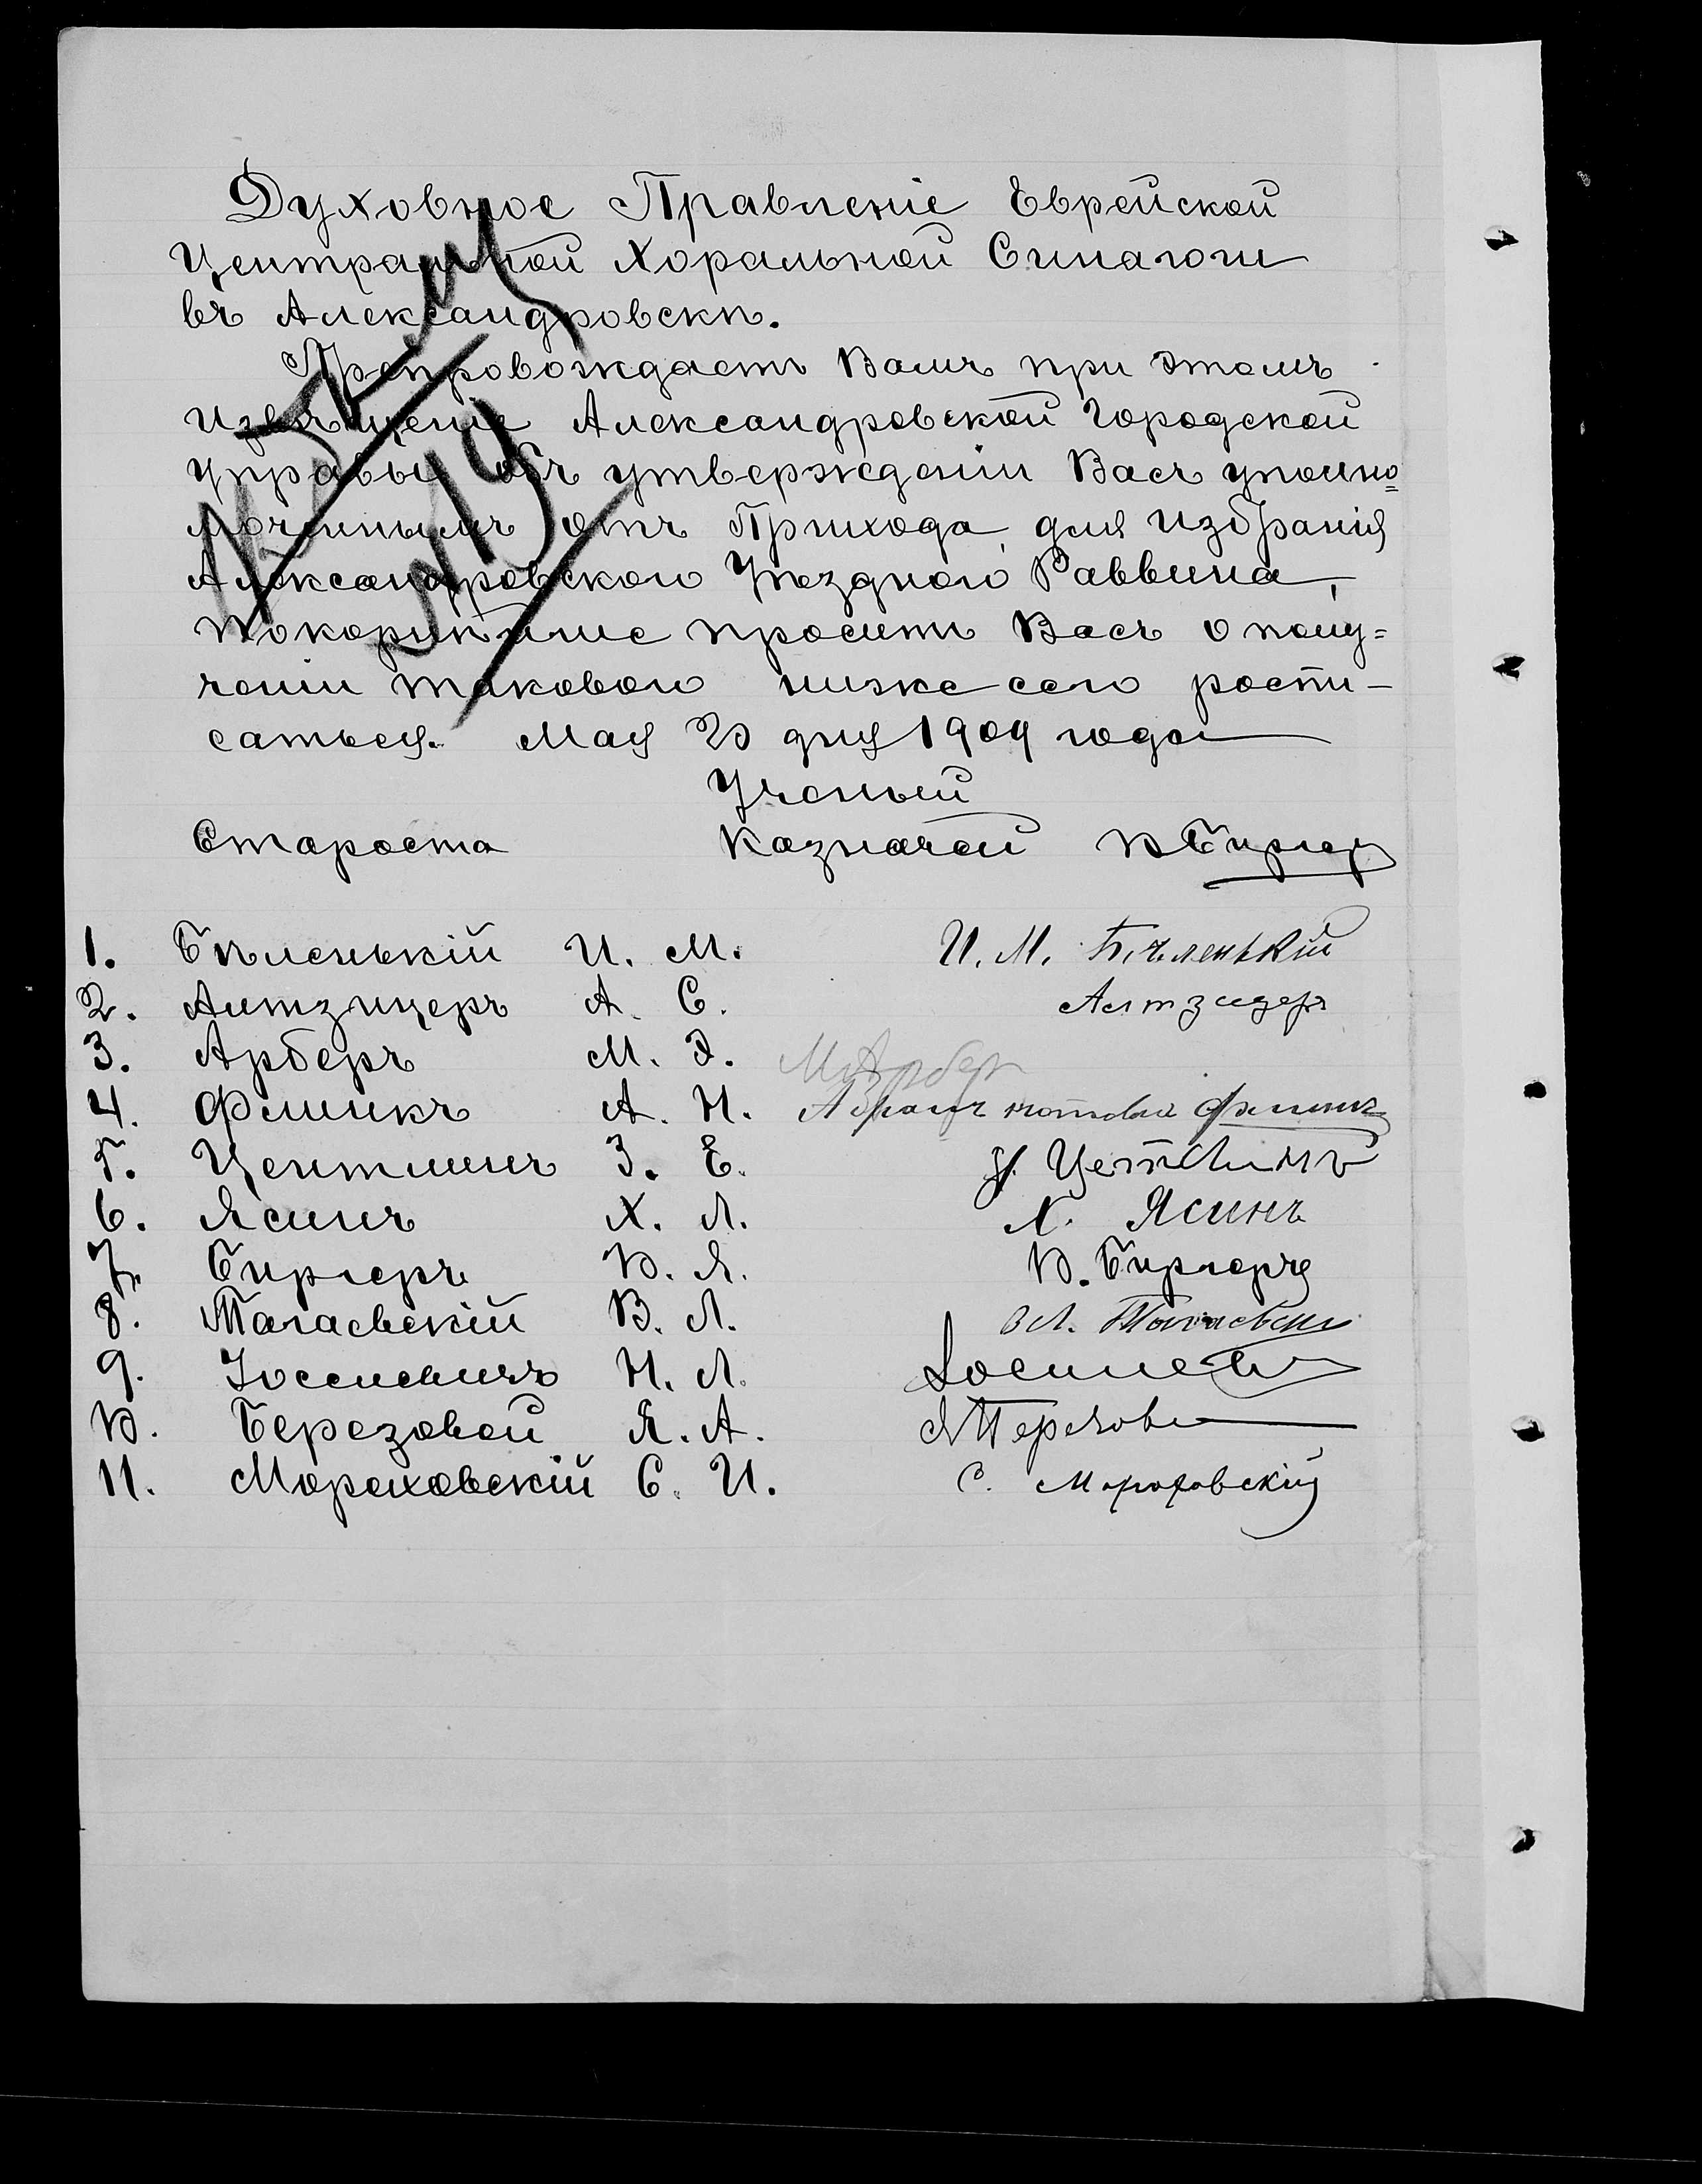 Духовное Правленіе Еврейской
Центральной Хоральной Синагоги
въ Александровскѣ.
Препровождаетъ Вамъ при этомъ
извѣщеніе Александровской Городской
Управы объ утвержденіи Васъ уполно=
моченнымъ отъ Прихода для избранія
Александровского Уѣздного Раввина,
покорнѣйше проситъ Васъ о полу=
ченіи такового ниже сего роспи-
саться. Мая 20 дня 1909 года
Ученый
Староста Казначей Биргер
1. Бѣленькій И. М. И. М. Бѣленькій
2. Алтзицеръ А. С. Алтзицеръ
3. Арберъ М. Э. М Арбер
4. Флинкъ А. Н. Абрамъ Флинкъ
5. Цейтлинъ З. Е. Цетлинъ
6. Ясинъ Х. Л. Х. Ясинъ
7. Биргеръ В. Я. В. Биргеръ
8. Тагаевскій В. Л. В Л. Тагаевскій
9. Іоссилевичъ Н. Л.
10. Березовой Я. А. Я
11. Мороховскій С. И. С. Мороховскій